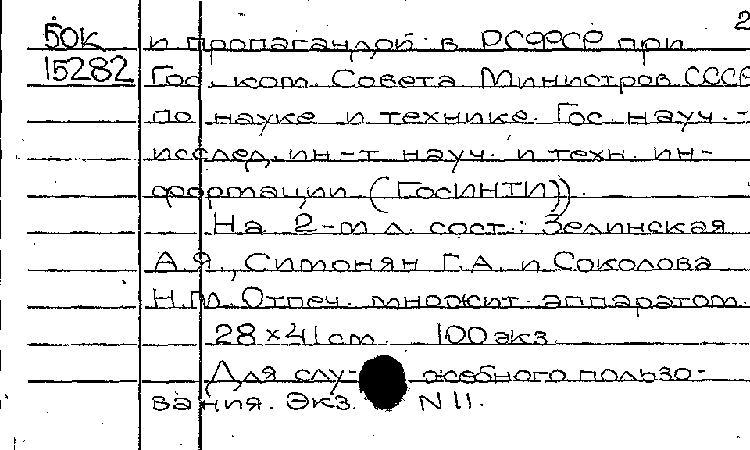 2
50к и пропагандой в РСФСР при
15282 Гос. ком. Совета Министров СССР
по науке и технике. Гос. науч.-
исслед. ин-т науч. и техн. ин-
формации (ГОСИНТИ)).
На 2-м л. сост.: Зелинская
А.Я., Симонян Г.А. и Соколова
Н.М. Отпеч. множит. аппаратом.
28×41 см. 100 экз.
Для слу- жебного пользо-
вания. Экз. N 11.